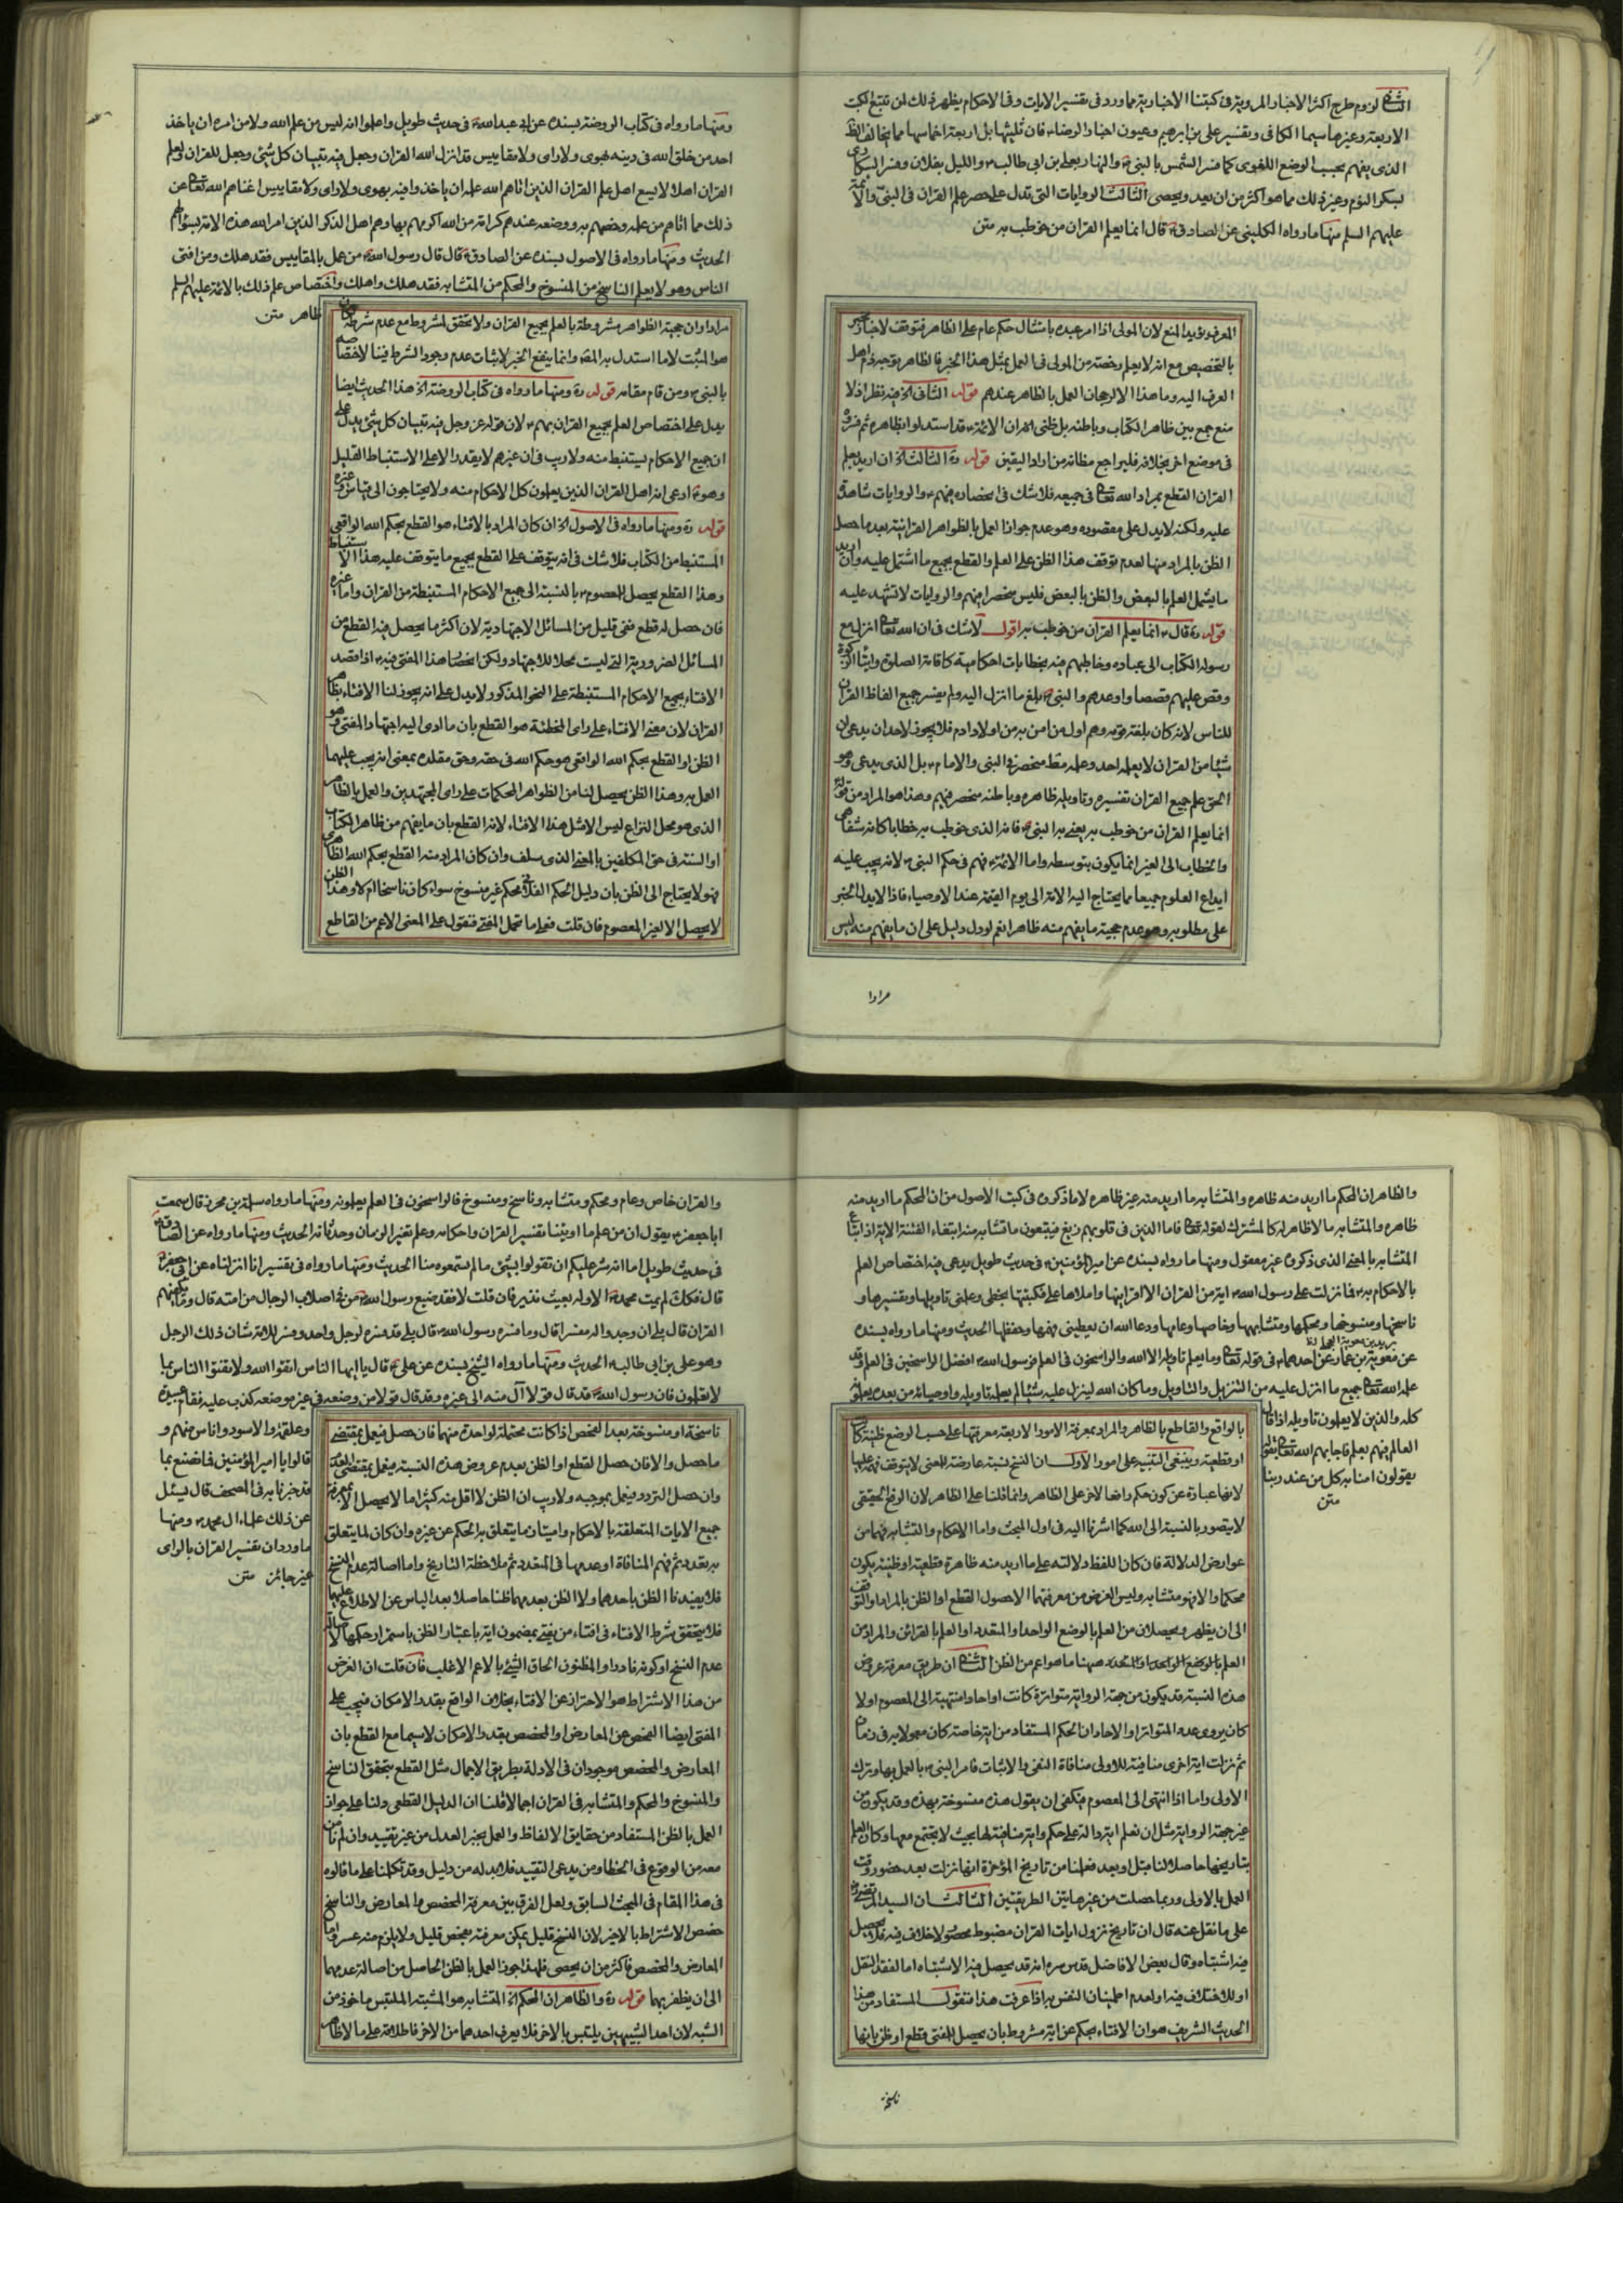 الثانی لزوم طرح اکثر الاخبار المرویة فی کتبنا الاخباریة مما ورد فی تفسیر الایات وفی الاحکام یظهر ذلک لمن تتبع الکتب
الاربعة وغیرها سیما الکافی وتفسیر علی بن ابرهیم وعیون اخبار الرضاء فان ثلیثها بل اربعة اخماسها مما یخالف الظ
الذی یفهم بحسب الوضع اللغوی کما فسر الشمس بالنبی والنهار بعلی بن ابی طالب واللیل بفلان وفسر السکاری
بسکر النوم وغیر ذلک مما هو اکثر من ان یعد ویحصی الثالث الروایات التی تدل علی حصر علم القران فی النبی والائمة
علیهم السلم منها ما رواه الکلینی عن الصادق قال انما یعلم القران من خوطب به متن
العرف ویؤید المنع لان المولی اذا امر عبده بامتثال حکم عام علی الظاهر فتوقف لاخبار مخبر
بالتخصیص مع انه لا یعلم رخصته من المولی فی العمل بمثل هذا الخبر فالظاهر توجه ذم اهل
العرف الیه وما هذا الا لرجحان العمل بالظاهر عندهم قوله الثانی الخ فیه نظر اذ لا
منع جمع بین ظاهر الکتاب وباطنه بل ظنی ان الائمة قد استدلوا بظاهره ثم فسروه
فی موضع اخر بخلافه فلیراجع مظانه من اراد الیقین قوله ره الثالث الخ ان ارید بعلم
القران القطع بمراد الله تعالی فی جمیعه فلا شک فی انحصاره فیهم والروایات شاهدة
علیه ولکنه لا یدل علی مقصوده وهو عدم جواز العمل بالظواهر القرانیة بعد ما حصل
الظن بالمراد منها لعدم توقف هذا الظن علی العلم والقطع بجمیع ما اشتمل علیه وان ارید
ما یشمل العلم بالبعض والظن بالبعض فلیس منحصرا فیهم والروایات لا تشهد علیه
قوله ره قال انما یعلم القران من خوطب به اقول لا شک فی ان الله تعالی انزل مع
رسوله الکتاب الی عباده وخاطبهم فیه بخطابات احکامیة کاقامة الصلوة وایتاء الزکوة
وقص علیهم قصصا واوعدهم والنبی بلغ ما انزل الیه ولم یفسر جمیع الفاظ القران
للناس لانه کان بلغة قومه وهم اول من امن به من اولاد ادم فلا یجوز لاحد ان یدعی ان
شیئا من القران لا یعلمه احد وعلمه فقط منحصر فی النبی والامام بل الذی یدعی وهو
الحق علم جمیع القران تفسیره وتاویله ظاهره وباطنه منحصر فیهم وهذا هو المراد من قوله
انما یعلم القران من خوطب به یعنی به النبی فانه الذی خوطب به خطابا کانه شفاهی
والخطاب الی الغیر انما یکون بتوسطه واما الائمة فهم فی حکم النبی لانه یجب علیه
ایداع العلوم جمیعا مما یحتاج الیه الامة الی یوم القیمة عند الاوصیاء فاذا لا یدل الخبر
علی مطلوبه وهو عدم حجیة ما یفهم منه ظاهرا نعم لو دل دلیل علی ان ما یفهم منه لیس
مرادا
ومنها ما رواه فی کتاب الروضة بسنده عن ابی عبد الله فی حدیث طویل واعلموا انه لیس من علم الله ولا من امره ان یاخذ
احد من خلق الله فی دینه بهوی ولا رای ولا مقاییس قد انزل الله القران وجعل فیه تبیان کل شیء وجعل للقران ولعلم
القران اهلا لا یسع اهل علم القران الذین اتاهم الله علمه ان یاخذوا فیه بهوی ولا رای ولا مقاییس اغناهم الله تعالی عن
ذلک مما اتاهم من علمه وخصهم به ووضعه عندهم کرامة من الله اکرمهم بها وهم اهل الذکر الذین امر الله هذه الامة بسؤالهم
الحدیث ومنها ما رواه فی الاصول بسنده عن الصادق قال قال رسول الله من عمل بالمقاییس فقد هلک ومن افتی
الناس وهو لا یعلم الناسخ من المنسوخ والمحکم من المتشابه فقد هلک واهلک واختصاص علم ذلک بالائمة علیهم السلم
ظاهر متن
مرادا وان حجیة الظواهر مشروطة بالعلم بجمیع القران ولا یتحقق المشروط مع عدم شرطه کان
هو المثبت لا ما استدل به المص وانما ینفع الخبر لاثبات عدم وجود الشرط فینا لاختصاصه
بالنبی ومن قام مقامه قوله ره ومنها ما رواه فی کتاب الروضة الخ هذا الحدیث ایضا
یدل علی اختصاص العلم بجمیع القران بهم لان قوله عز وجل فیه تبیان کل شیء یدل علی
ان جمیع الاحکام لیستنبط منه ولا ریب فی ان غیرهم لا یقدر الا علی الاستنباط القلیل
وهو ادعی انه اهل القران الذین یعلمون کل الاحکام منه ولا یحتاجون الی قیاس وغیره
قوله ره ومنها ما رواه فی الاصول الخ ان کان المراد بالافتاء هو القطع بحکم الله الواقعی
المستنبط من الکتاب فلا شک فی انه یتوقف علی القطع بجمیع ما یتوقف علیه هذا الاستنباط
وهذا القطع یحصل للمعصوم بالنسبة الی جمیع الاحکام المستنبطة من القران واما غیره
فان حصل له قطع ففی قلیل من المسائل الاجتهادیة لان اکثر ما یحصل فیه القطع من
المسائل الضروریة التی لیست محلا للاجتهاد ولکن اختصاص هذا المفتی فیه اذا قصد
الافتاء بجمیع الاحکام المستنبطة علی النحو المذکور لا یدل علی انه یجوز لنا الافتاء بظاهر
القران لان معنی الافتاء علی رای المخطئة هو القطع بان ما ادی الیه اجتهاد المفتی وهو
الظن او القطع بحکم الله الواقعی هو حکم الله فی حقه وحق مقلده بمعنی انه یجب علیهما
العمل به وهذا الظن یحصل لنا من الظواهر المحکمات علی رای المجتهدین والعمل بالظاهر
الذی هو محل النزاع لیس الا مثل هذا الافتاء لانه القطع بان ما یفهم من ظاهر الکتاب
او السنة فی حق المکلفین بالمعنی الذی سلف وان کان المراد منه القطع بحکم الله الظاهری
فهو لا یحتاج الی الظن بان دلیل الحکم الفلانی محکم غیر منسوخ سواء کان ناسخا ام لا وهذا الظن
لا یحصل الا لغیر المعصوم فان قلت فعلی ما تحمل المفتی فنقول علی المعنی الاعم من القاطع
والظاهر ان المحکم ما ارید منه ظاهره والمتشابه ما ارید منه غیر ظاهره لا ما ذکروه فی کتب الاصول من ان المحکم ما ارید منه
ظاهره والمتشابه ما لا ظاهر له کالمشترک لقوله تعالی فاما الذین فی قلوبهم زیغ فیتبعون ما تشابه منه ابتغاء الفتنة الایة اذ اتباع
المتشابه بالمعنی الذی ذکروه غیر معقول ومنها ما رواه بسنده عن امیر المؤمنین فی حدیث طویل یدعی فیه اختصاص العلم
بالاحکام به فما نزلت علی رسول الله ایة من القران الا اقرانیها واملاها علی فکتبتها بخطی وعلمنی تاویلها وتفسیرها و
ناسخها ومنسوخها ومحکمها ومتشابهها وخاصها وعامها ودعا الله ان یعطینی فهمها وحفظها الحدیث ومنها ما رواه بسنده
عن معویة بن عمار عن احدهما فی قوله تعالی وما یعلم تاویله الا الله والراسخون فی العلم فرسول الله افضل الراسخین فی العلم قد
علمه الله تعالی جمیع ما انزل علیه من التنزیل والتاویل وما کان الله لینزل علیه شیئا لم یعلمه تاویله واوصیائه من بعده یعلمونه
کله والذین لا یعلمون تاویله اذا قال
العالم فیهم بعلم فاجابهم الله تعالی بقوله
یقولون امنا به کل من عند ربنا
متن
بالواقع والقاطع بالظاهر والمراد بمعرفة الامور الاربعة معرفتها علی حسب الوضع ظنیة کان
او قطعیة وینبغی التنبیه علی امور الاول ان النسخ نسبة عارضة للمعنی لا یتوقف فهمه علیها
لانها عبارة عن کون حکم رافعا لاخر علی الظاهر وانما قلنا علی الظاهر لان الرفع الحقیقی
لا یتصور بالنسبة الی الله کما اشرنا الیه فی اول المبحث واما الاحکام والتشابه فهما من
عوارض الدلالة فان کان للفظ دلالة علی ما ارید منه ظاهرة قطعیة او ظنیة یکون
محکما والا فهو متشابه ولیس الغرض من معرفتهما الا حصول القطع او الظن بالمراد والتوقف
الی ان یظهر ویحصلان من العلم بالوضع الواحد او المتعدد او العلم بالقرائن والمراد من
العلم بالوضع الواحد او المتعدد ههنا ما هو اعم من الظن الثانی ان طریق معرفة عروض
هذه النسبة قد یکون من جهة الروایة متواترة کانت او احادا منتهیة الی المعصوم او لا
کان یروی عدد التواتر او الاحاد ان الحکم المستفاد من ایة خاصة کان معمولا به فی زمان
ثم نزلت ایة اخری منافیة للاولی منافاة النفی والاثبات فامر النبی بالعمل بها وترک
الاولی واما اذا انتهی الی المعصوم فیکفی ان یقول هذه منسوخة بهذه وقد یکون من
غیر جهة الروایة مثل ان نعلم ایة دالة علی حکم وایة منافیة لها بحیث لا یجتمع معها وکان العلم
بتاریخها حاصلا لنا قبل او بعد فعلمنا من تاریخ المؤخرة انها نزلت بعد حضور وقت
العمل بالاولی وربما حصلت من غیر هاتین الطریقتین الثالث ان السید المرتضی
علی ما نقل عنه قال ان تاریخ نزول ایات القران مضبوط محصور لا خلاف فیه فلا یحصل
فیه اشتباه وقال بعض الافاضل قدس سره انه قد یحصل فیه الاشتباه اما لفقد النقل
او للاختلاف فیه او لعدم اطمینان النفس به اذا عرفت هذا فنقول المستفاد من هذا
الحدیث الشریف هو ان الافتاء بحکم عن ایة مشروط بان یحصل للمفتی قطع او ظن بانها
ناسخة
والقران خاص وعام ومحکم ومتشابه وناسخ ومنسوخ فالراسخون فی العلم یعلمونه ومنها ما رواه سلمة بن محرز قال سمعت
ابا جعفر یقول ان من علم ما اوتینا تفسیر القران واحکامه وعلم تغییر الزمان وحدثانه الحدیث ومنها ما رواه عن الصادق
فی حدیث طویل اما انه شر علیکم ان تقولوا بشیء ما لم تسمعوه منا الحدیث ومنها ما رواه فی تفسیر انا انزلناه عن ابی جعفر
قال فکک لم یمت محمد الا وله بعیث نذیر فان قلت لا فقد ضیع رسول الله من فی اصلاب الرجال من امته قال وما یکفیهم
القران قال بلی ان وجدوا له مفسرا قال وما فسره رسول الله قال بلی قد فسره لرجل واحد وفسر للامة شان ذلک الرجل
وهو علی بن ابی طالب الحدیث ومنها ما رواه الشیخ بسنده عن علی قال یا ایها الناس اتقوا الله ولا تفتوا الناس بما
لا تعلمون فان رسول الله قد قال قولا آل منه الی غیره وقد قال قولا من وضعه فی غیر موضعه کذب علیه فقام عبیدة
وعلقمة والاسود واناس منهم و
قالوا یا امیر المؤمنین فما نصنع بما
قد خبرنا به فی المصحف قال یسئل
عن ذلک علماء ال محمد ومنها
ما ورد ان تفسیر القران بالرای
غیر جائز متن
ناسخة او منسوخة بعد الفحص اذا کانت محتملة لواحدة منهما فان حصل فیعمل بمقتضی
ما حصل والا فان حصل القطع او الظن بعدم عروض هذه النسبة فیعمل بمقتضی العدم
وان حصل التردد فیعمل بموجبه ولا ریب ان الظن لا اقل منه کثیرا ما لا یحصل الا بمعرفة
جمیع الایات المتعلقة بالاحکام وامتیاز ما یتعلق به الحکم عن غیره وان کان لما یتعلق
به تعدد ثم فهم المنافاة او عدمها فی المتعدد ثم ملاحظة التاریخ واما اصالة عدم النسخ
فلا یفیدنا الظن باحدهما ولا الظن بعدمهما ظنا حاصلا بعد الیاس عن الاطلاع علیهما
فلا یتحقق شرط الافتاء فی افتاء من یفتی بمضمون ایة باعتبار الظن باستمرار حکمها لاصالة
عدم النسخ او کونه نادرا والمظنون الحاق الشیء بالاعم الاغلب فان قلت ان الغرض
من هذا الاشتراط هو الاحتراز عن الافتاء بخلاف الواقع بقدر الامکان فیجب علی
المفتی ایضا الفحص عن المعارض والمخصص بقدر الامکان لا سیما مع القطع بان
المعارض والمخصص موجودان فی الادلة بطریق الاجمال مثل القطع بتحقق الناسخ
والمنسوخ والمحکم والمتشابه فی القران اجمالا قلنا ان الدلیل القطعی دلنا علی جواز
العمل بالظن المستفاد من حقایق الالفاظ والعمل بخبر العدل من غیر تقیید وان لم نامن
معه من الوقوع فی الخطا ومن یدعی التقیید فلا بد له من دلیل وقد تکلمنا علی ما قالوه
فی هذا المقام فی المبحث السابق ولعل الفرق بین معرفة المخصص والمعارض والناسخ
خصص الاشتراط بالاخیر لان النسخ قلیل یمکن معرفته بفحص قلیل ولا یلزم منه عسر واما
المعارض والمخصص فاکثر من ان یحصی فلهذا جوزوا العمل بالظن الحاصل من اصالة عدمهما
الی ان یظفر بهما قوله ره والظاهر ان المحکم الخ المتشابه هو المشتبه الملتبس ماخوذ من
الشبه لان احد الشبیهین یلتبس بالاخر فلا یعرف احدهما من الاخر فاطلاقه علی ما لا ظاهر